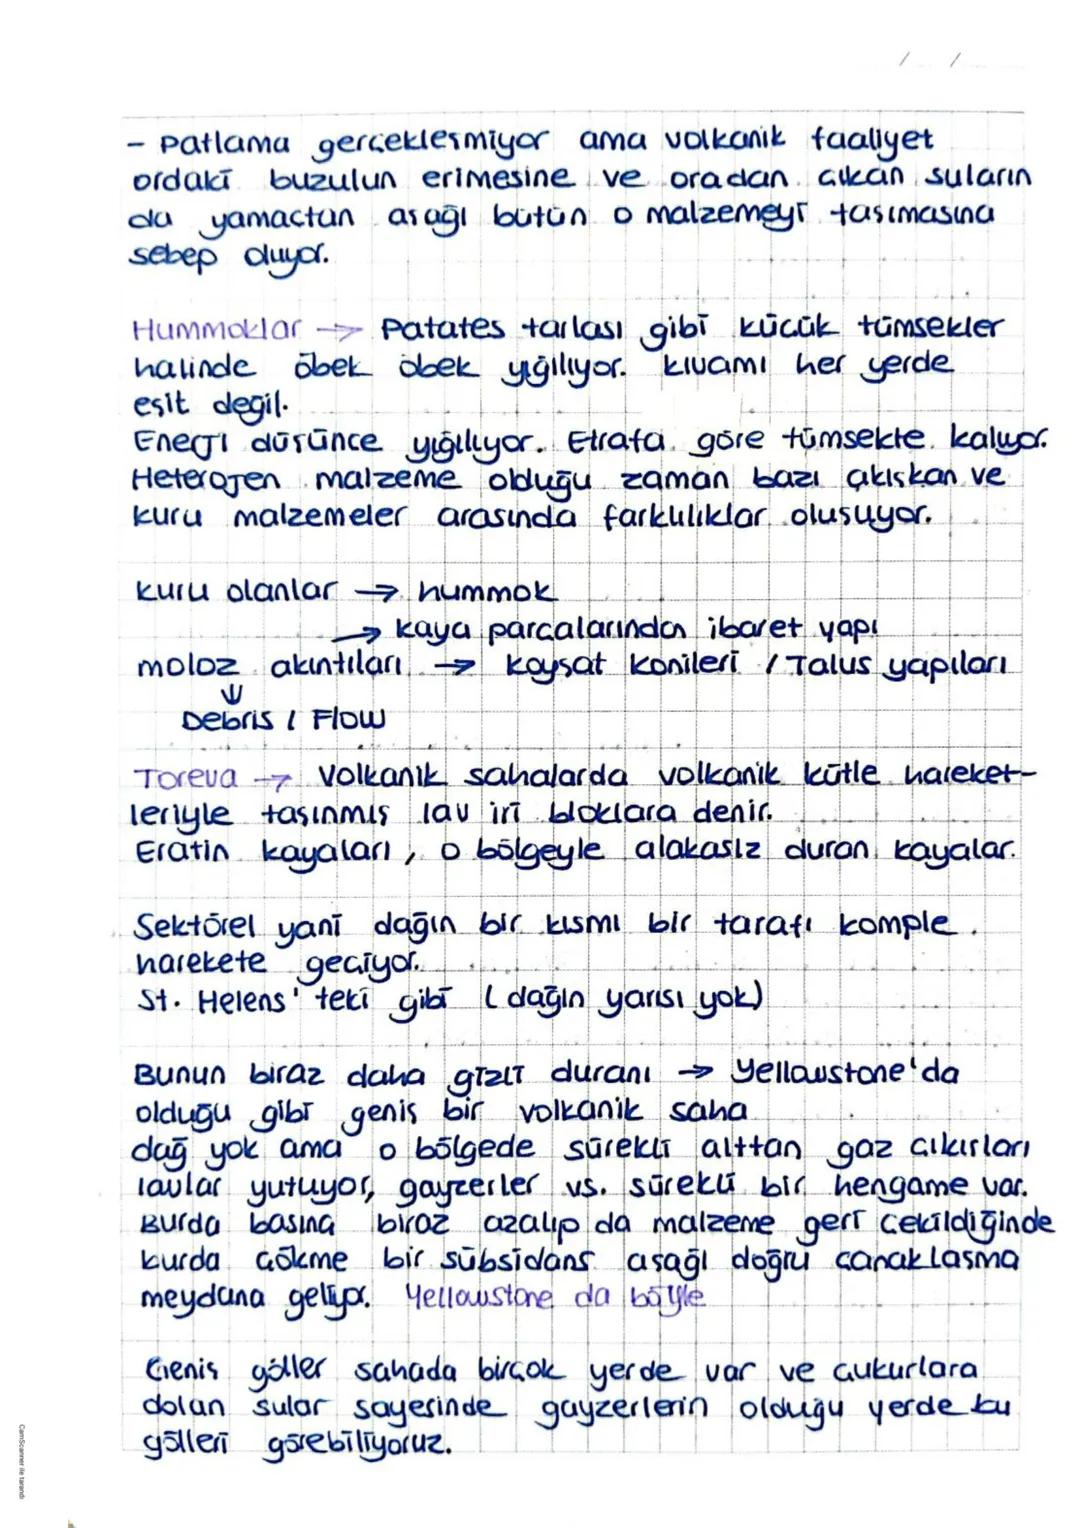 / /
- Patlama gerçekleşmiyor ama volkanik faaliyet
ordaki buzulun erimesine ve oradan çıkan suların
da yamaçtan aşağı bütün o malzemeyi taşımasına
sebep oluyor.
Hummoklar → Patates tarlası gibi küçük tümsekler
halinde öbek öbek yığılıyor. kıvamı her yerde
eşit değil.
Enerji düşünce yığılıyor. Etrafa göre tümsekte kalıyor.
Heterojen malzeme olduğu zaman bazı akışkan ve
kuru malzemeler arasında farkulıklar oluşuyor.
kuru olanlar → hummok
→ kaya parçalarından ibaret yapı
moloz akıntıları → kayşat konileri / Talus yapıları
↓
Debris / Flow
Toreva → Volkanik sahalarda volkanik kütle hareket-
leriyle taşınmış lav iri bloklara denir.
Eratin kayaları, o bölgeyle alakasız duran kayalar.
Sektörel yani dağın bir kısmı bir tarafı komple
harekete geçiyor.
St. Helens' teki gibi (dağın yarısı yok)
Bunun biraz daha gizli duranı → Yellowstone'da
olduğu gibi geniş bir volkanik saha
dağ yok ama o bölgede sürekli alttan gaz çıkışları
lavlar yutuyor, gayzerler vs. sürekli bir hengame var.
Burda basınç biraz azalıp da malzeme geri çekildiğinde
burda çökme bir sübsidans aşağı doğru çanaklaşma
meydana geliyor. Yellowstone da böyle
Geniş göller sahada birçok yerde var ve çukurlara
dolan sular sayesinde gayzerlerin olduğu yerde bu
gölleri görebiliyoruz.
CamScanner ile tarandı